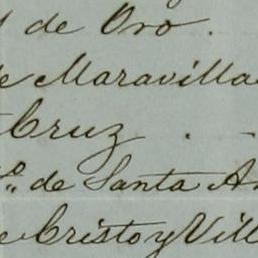 de Oro.
de Maravilla
Cruz . -
º. de Santa An
de Cristo y Vill